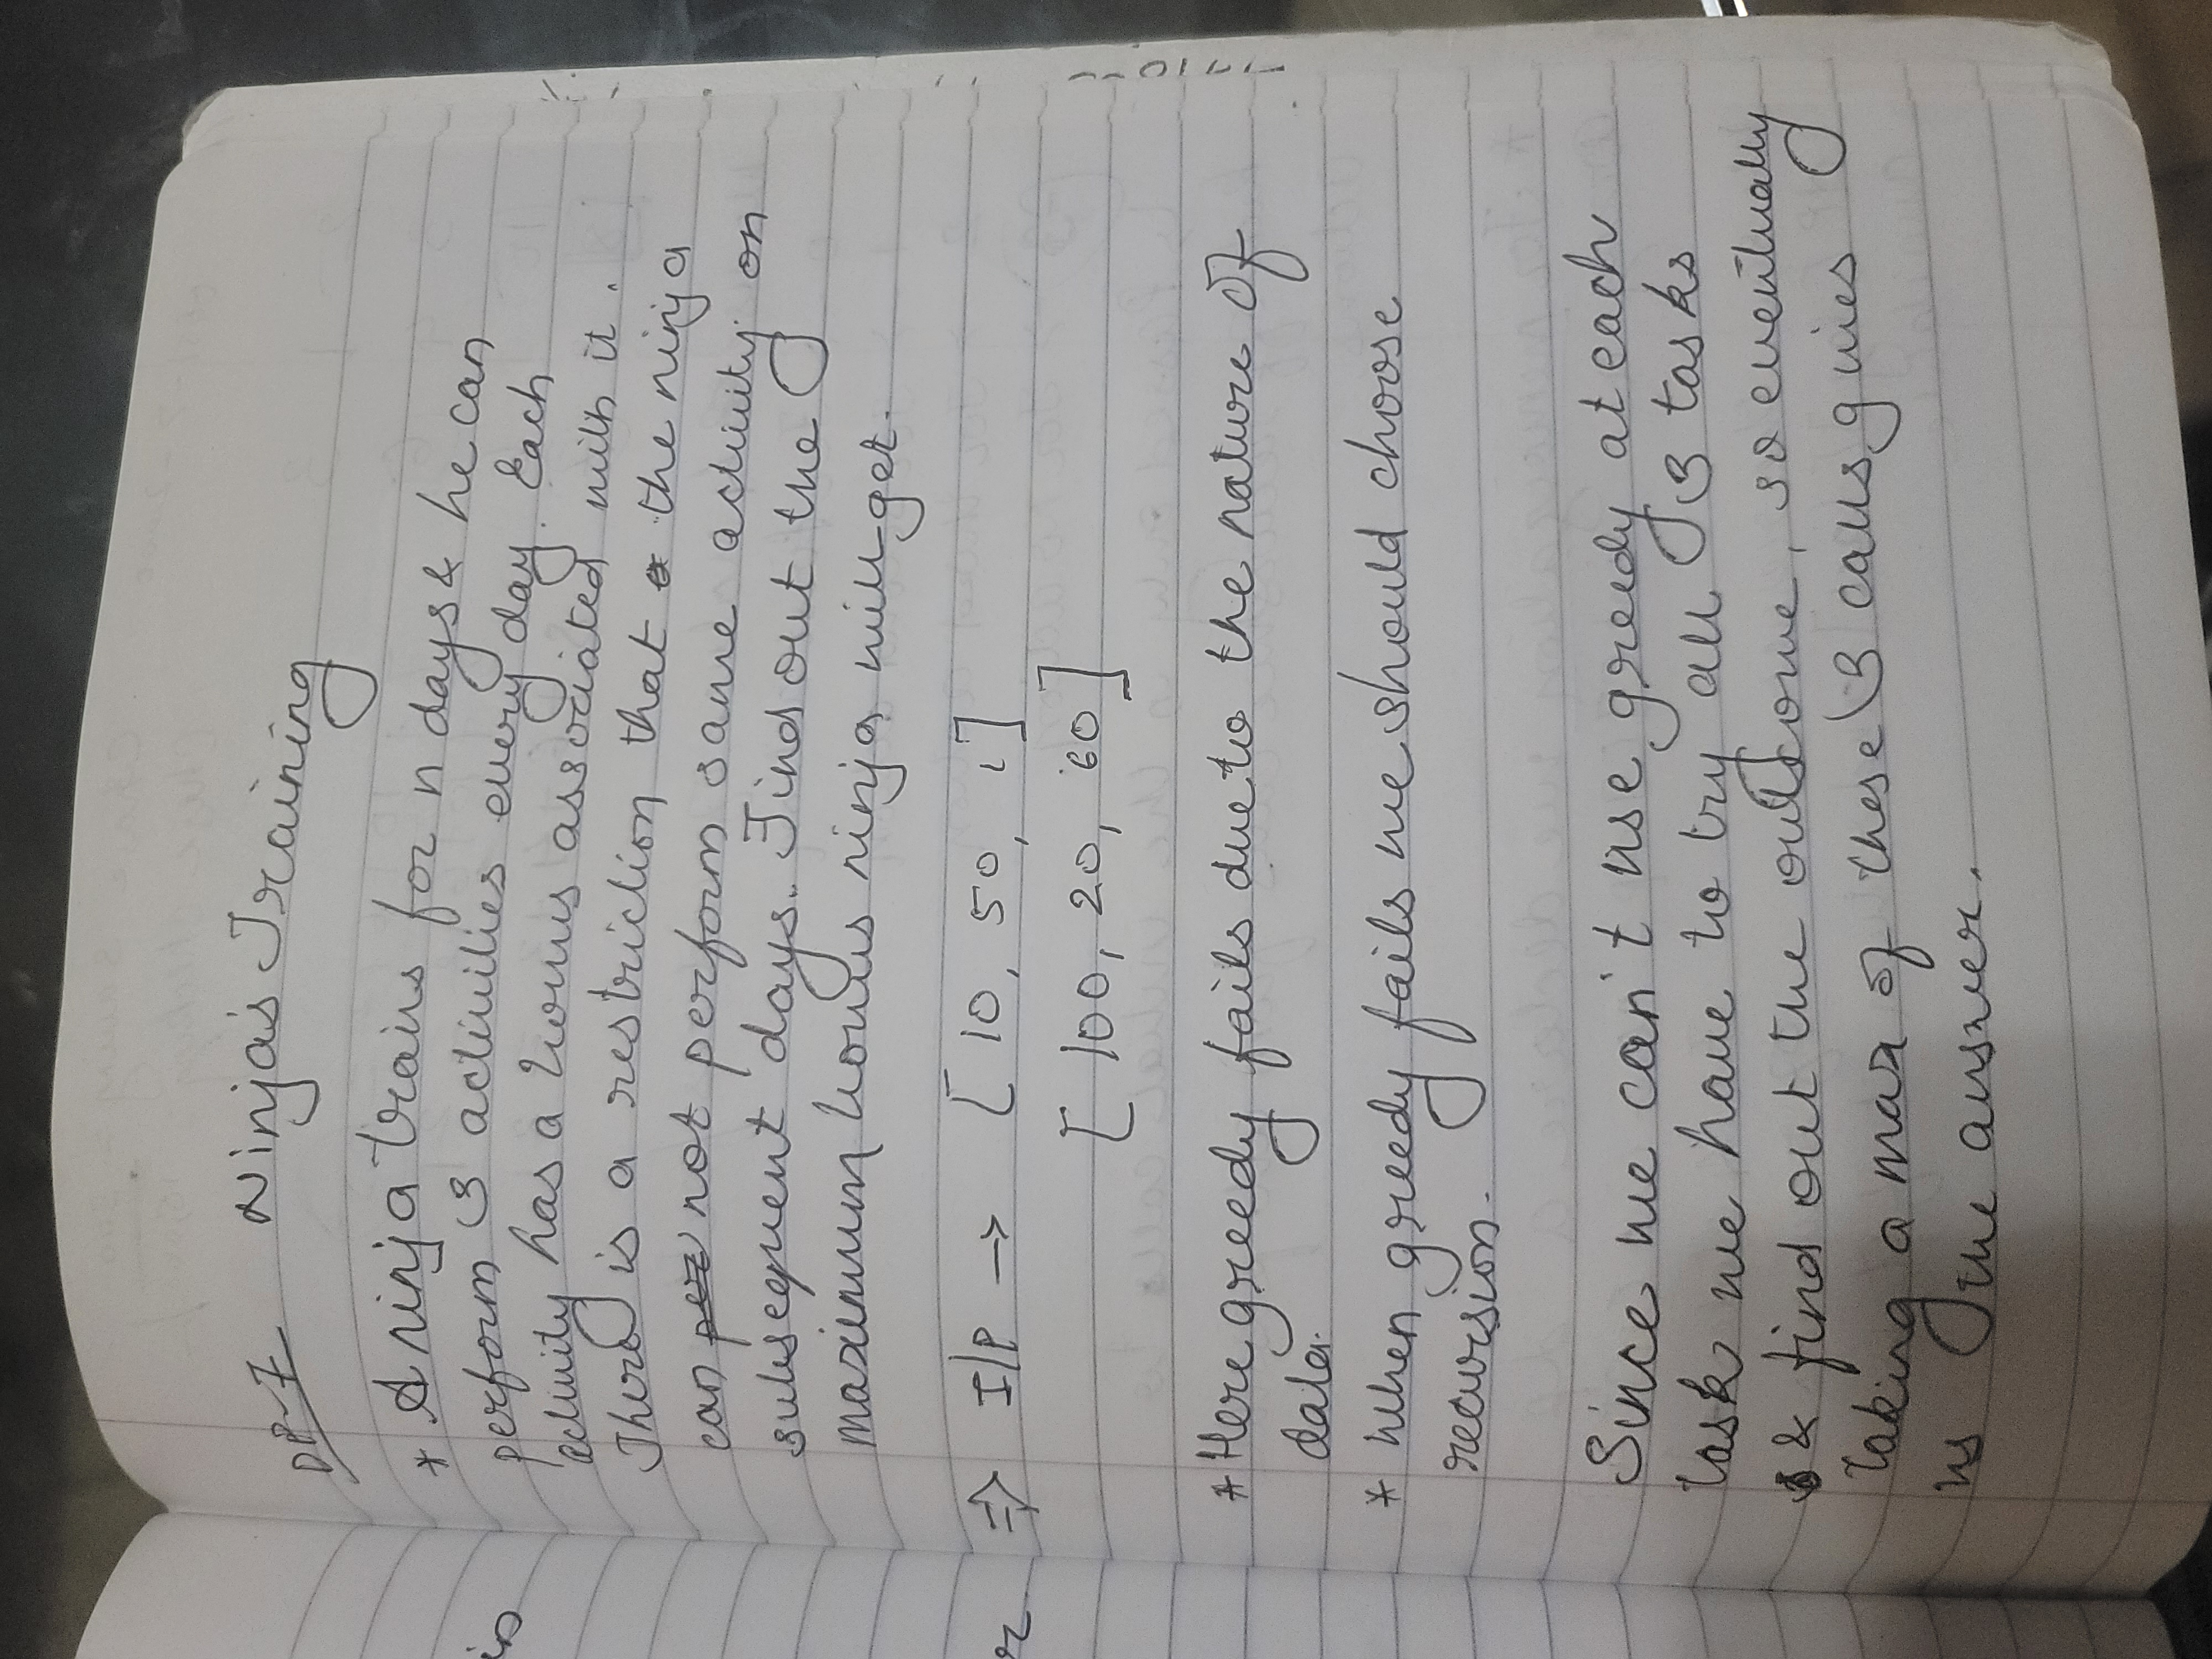 DP-7 Ninja's Training
* A ninja trains for n days & he can
perform 3 activities every day. Each
activity has a bonus associated with it.
There is a restriction that the ninja
can not perform same activity on
subsequent days. Find out the
maximum bonus ninja will get.
⇒ I/P → [ 10, 50, 1 ]
[ 100, 20, 60 ]
* Here greedy fails due to the nature of
data.
* When greedy fails we should choose
recursion.
Since we can't use greedy at each
task we have to try all 3 tasks
& find out the outcome, so eventually
taking a max of these 3 calls gives
us the answer.